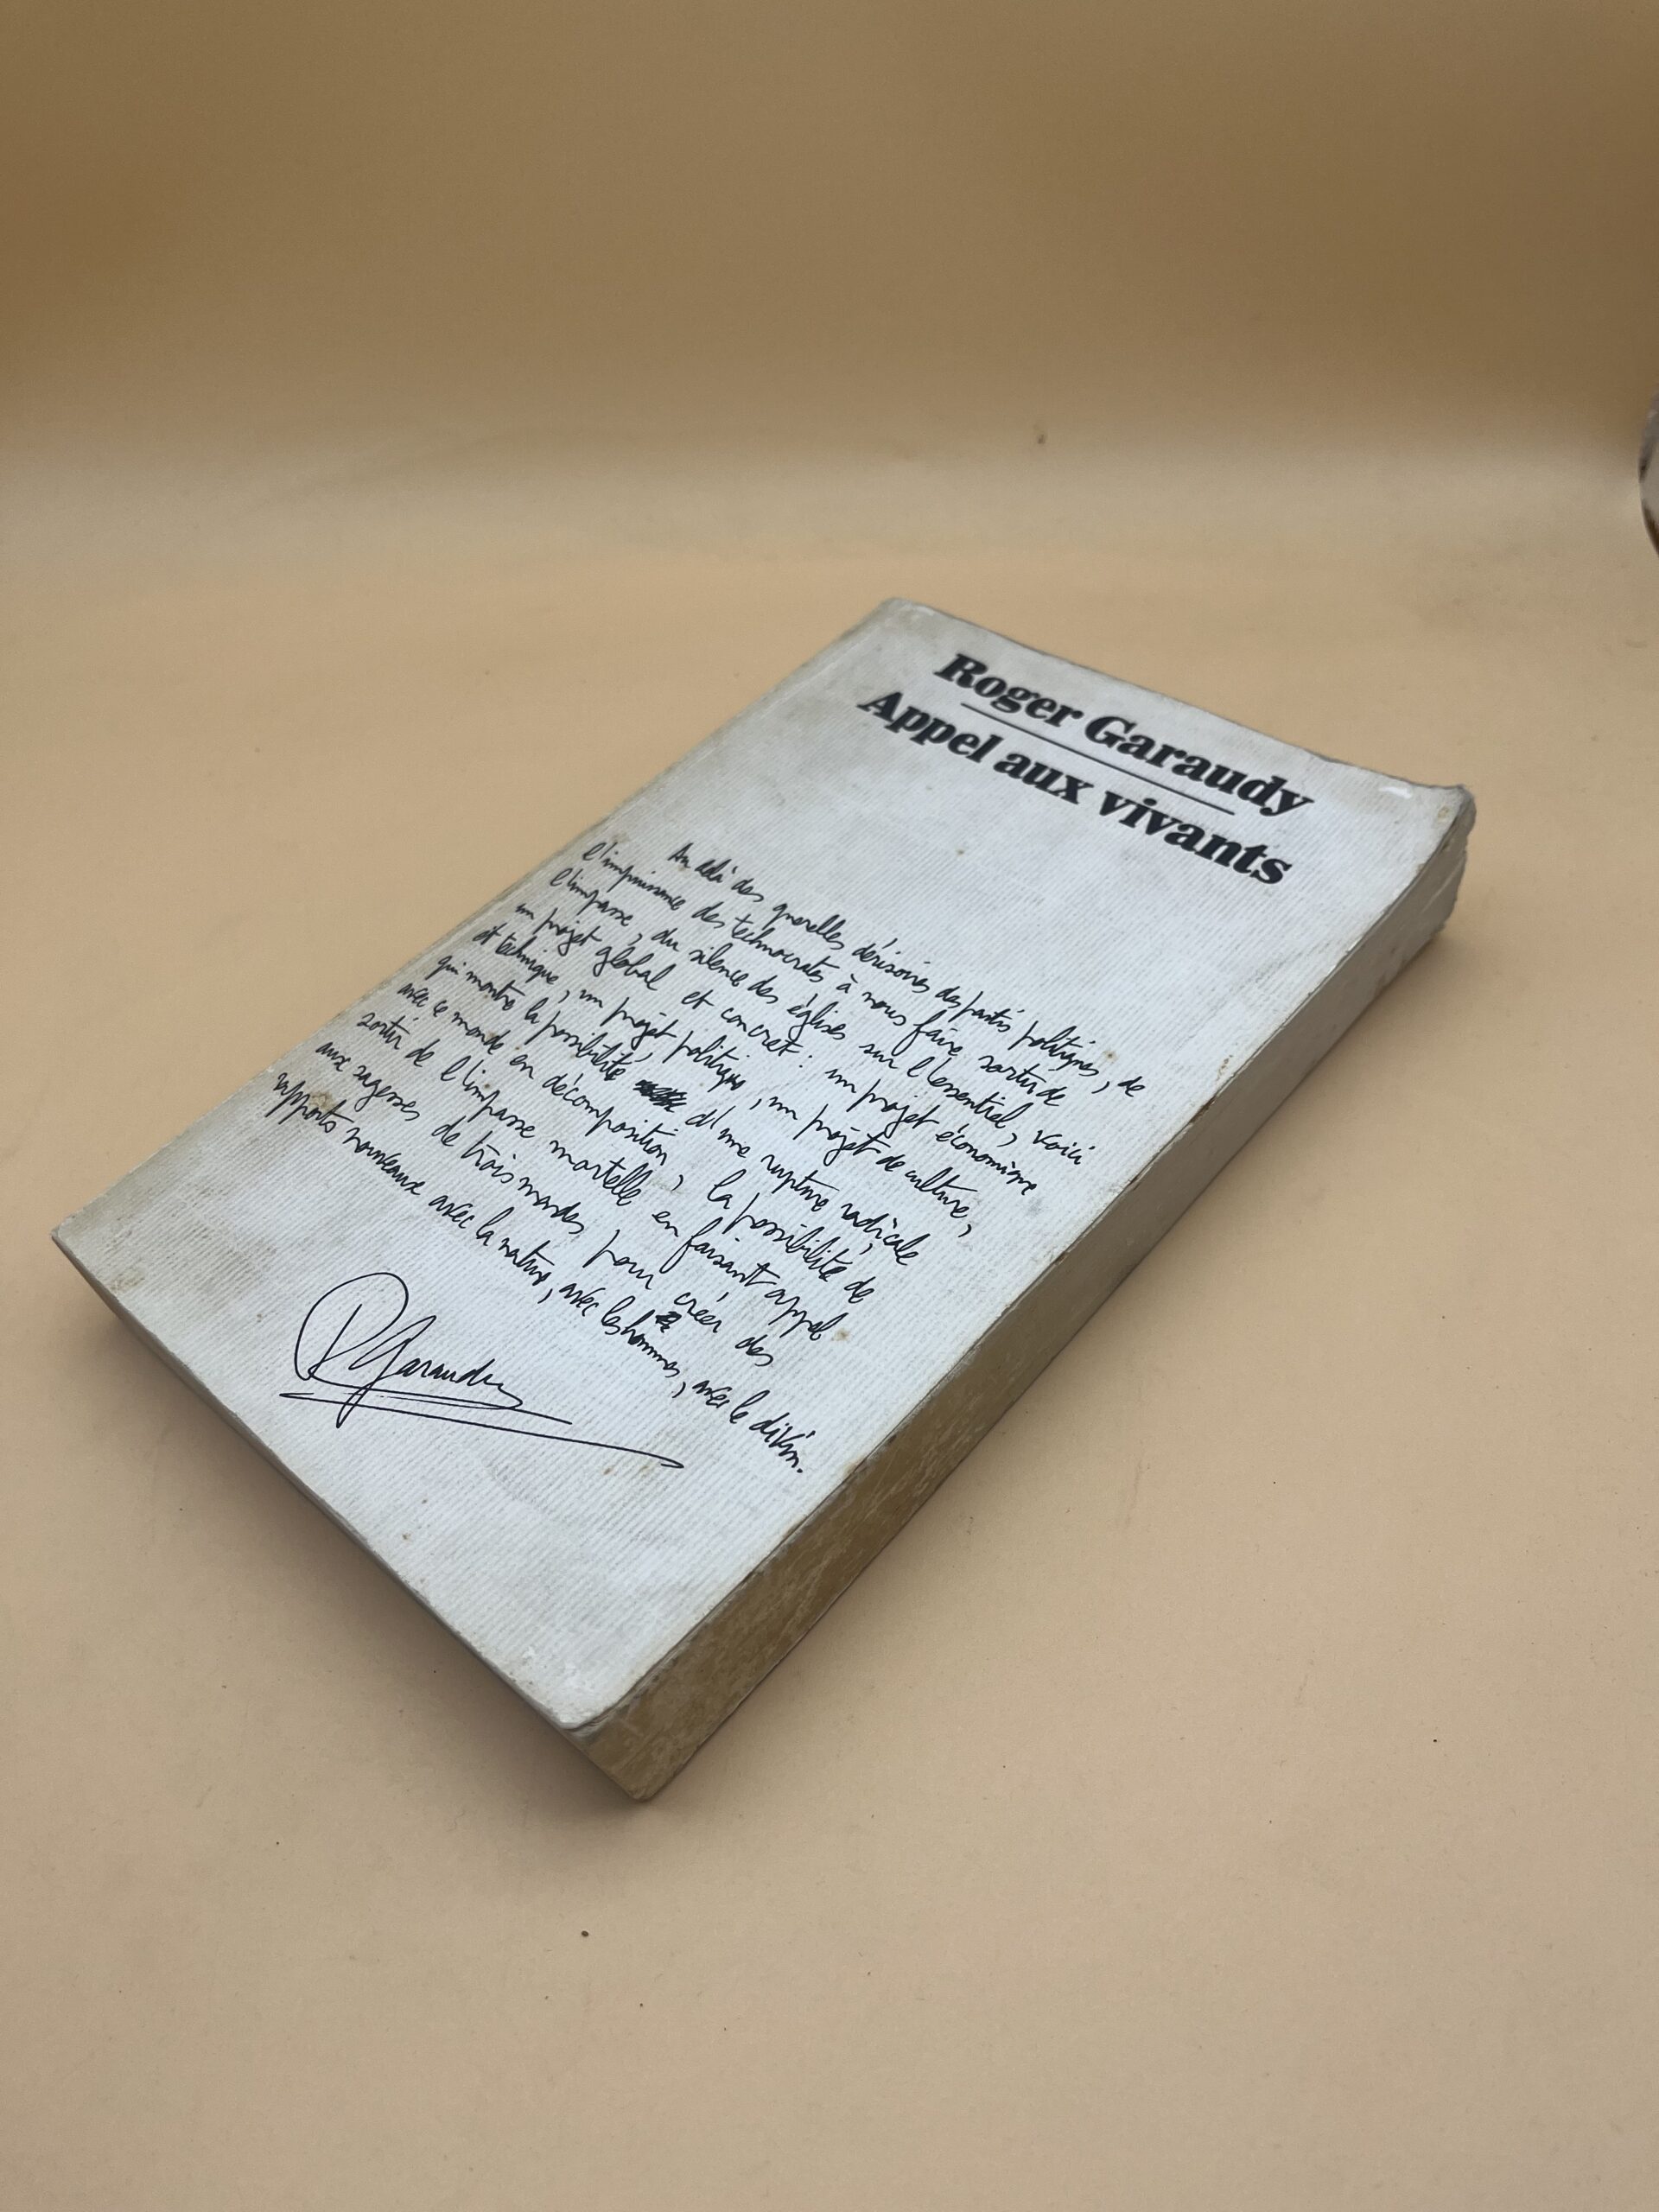 Roger Garaudy
Appel aux vivants
Au delà des querelles dérisoires des partis politiques, de
l'impuissance des technocrates à nous faire sortir de
l'impasse, du silence des églises sur l'essentiel, voici
un projet global et concret : un projet économique
et technique, un projet politique, un projet de culture,
qui montre la possibilité d'une rupture radicale
avec ce monde en décomposition, la possibilité de
sortir de l'impasse mortelle en faisant appel
aux sagesses de trois mondes, pour créer des
rapports nouveaux avec la nature, avec les hommes, avec le divin.
R Garaudy